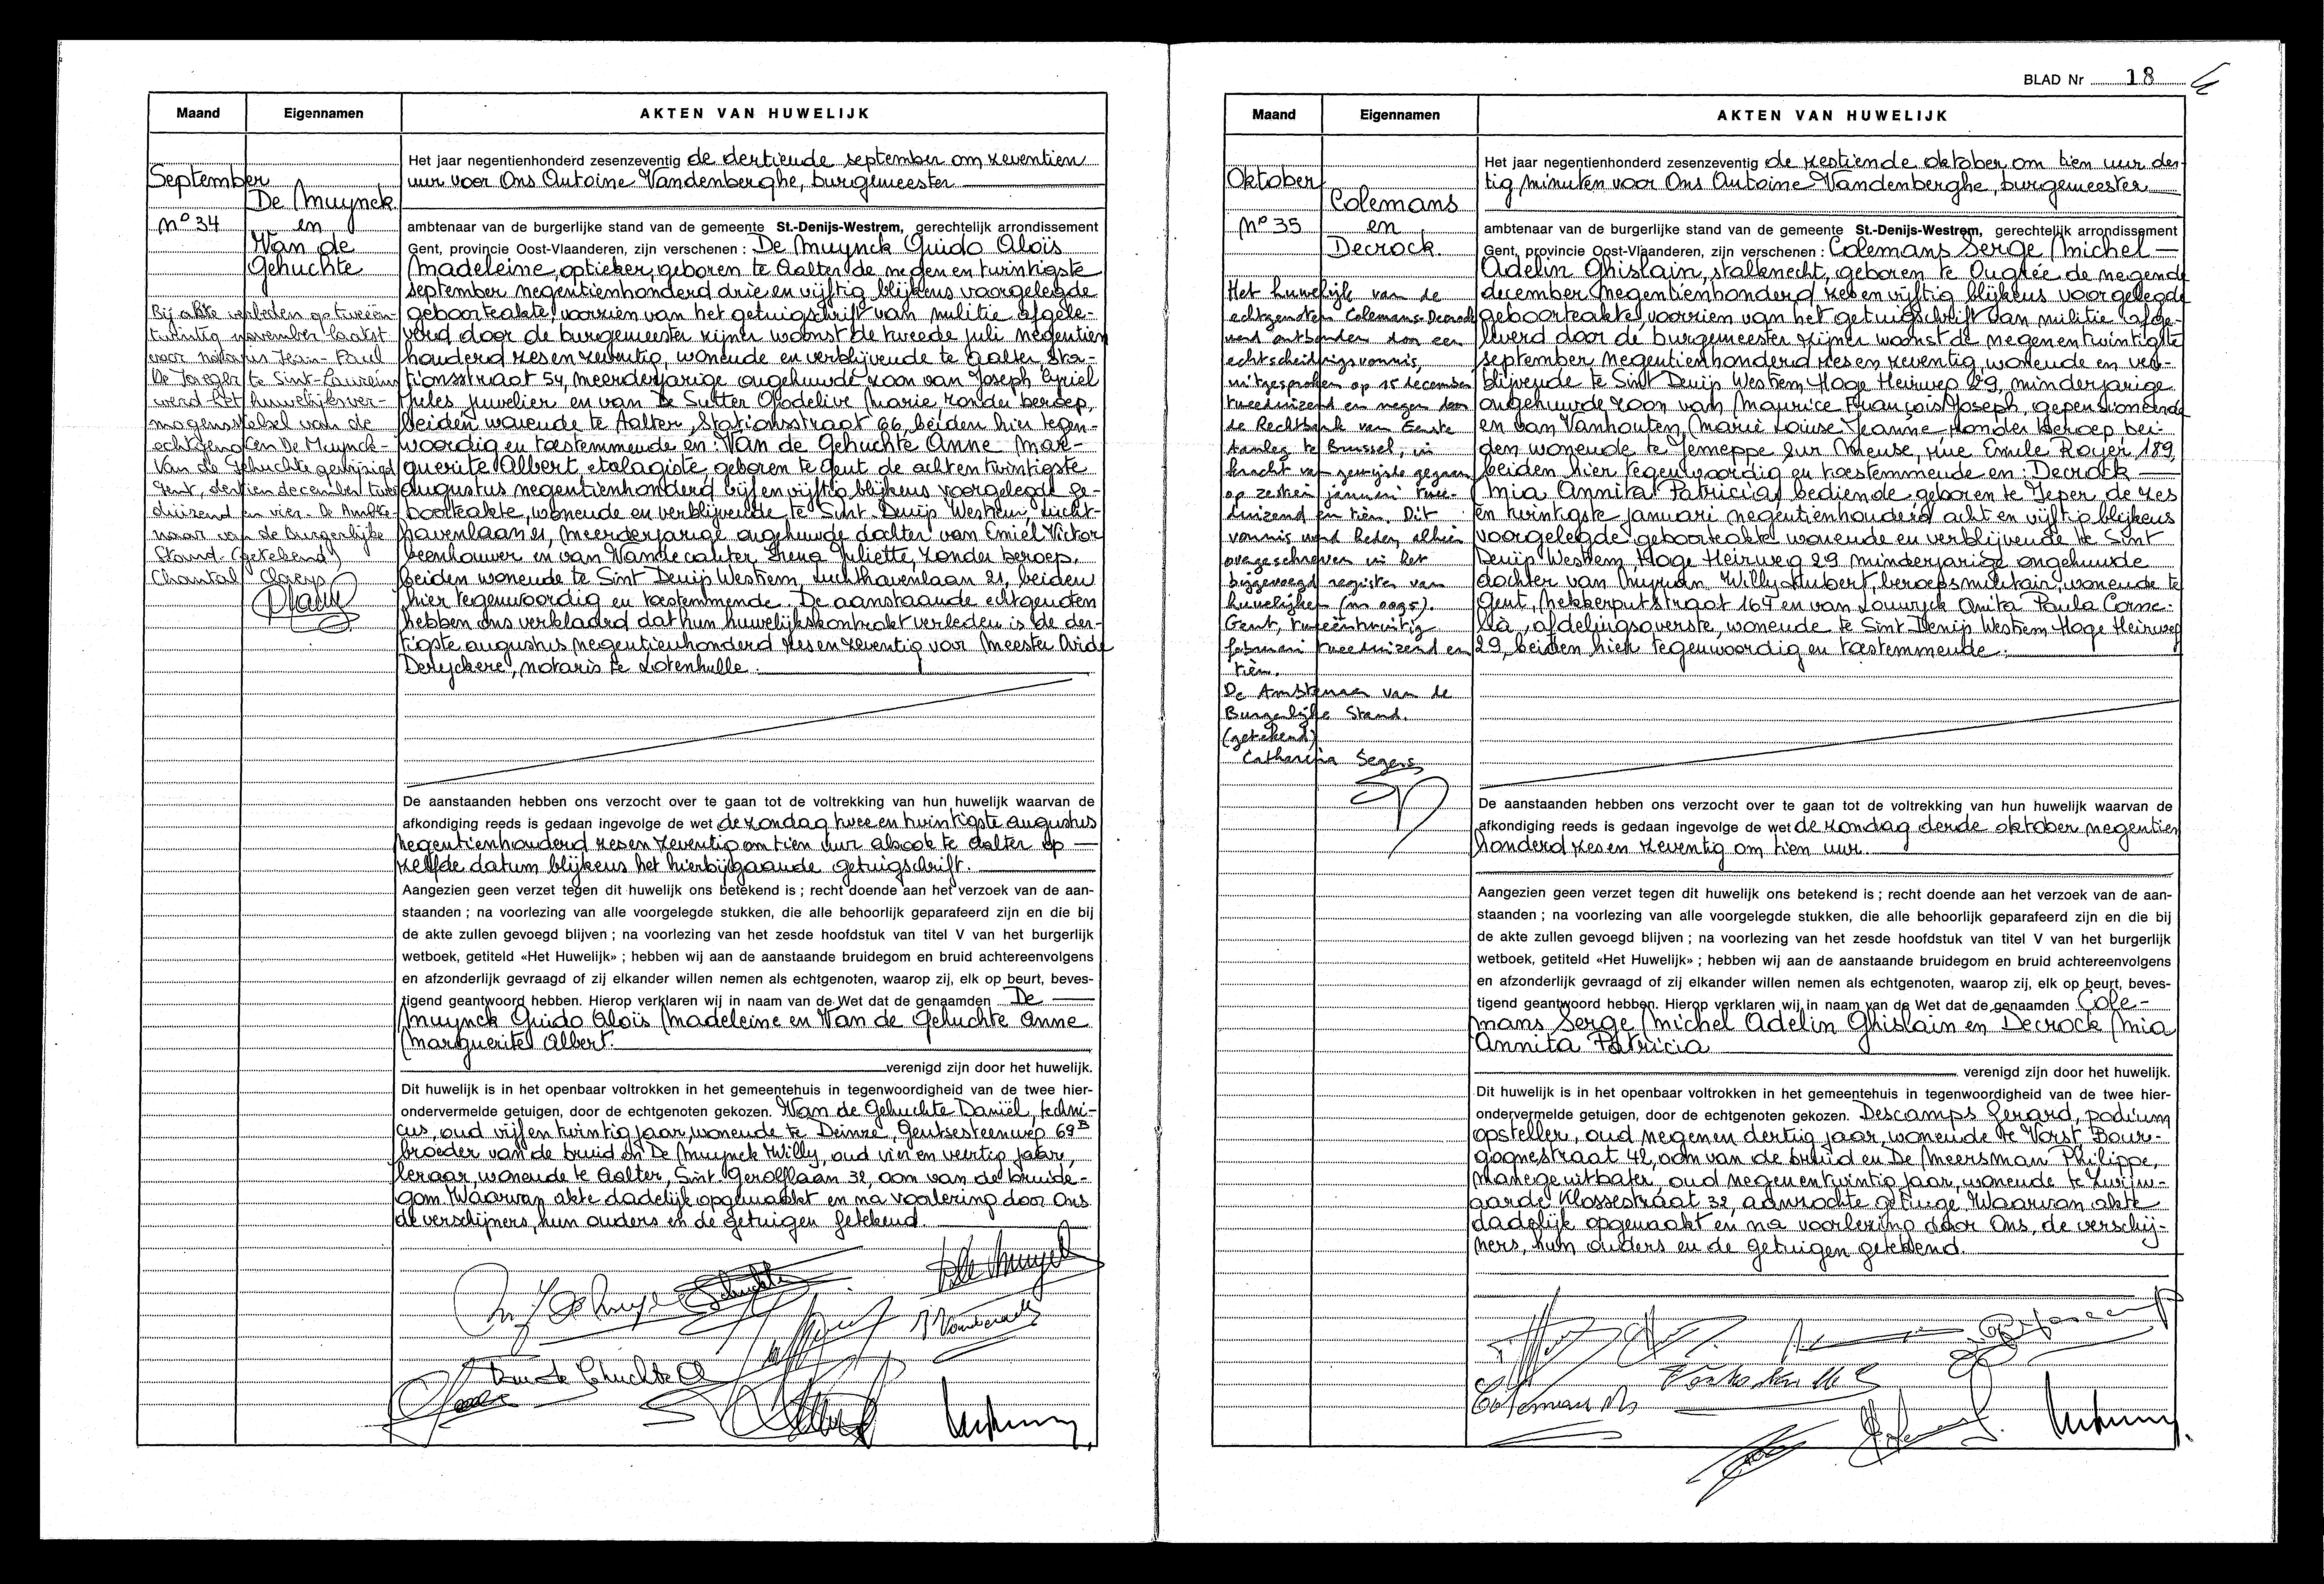 Maand Eigennamen AKTEN VAN HUWELIJK
September
De Muynck
N° 34 en
Van de
Gehuchte
Bij akte verleden op tweeën-
twintig november laatst
voor notaris Jean-Paul
De Jaeger te Sint-Laureins
werd het huwelijksver-
mogenstelsel van de
echtgenoten De Muynck-
Van de Gehuchte gewijzigd
Gent, dertien december twee
duizend en vier. De Ambte-
naar van de Burgerlijke
Stand. (getekend)
Chantal Claeys
Het jaar negentienhonderd zesenzeventig de dertiende september om zeventien
uur voor Ons Antoine Vandenberghe, burgemeester
ambtenaar van de burgerlijke stand van de gemeente St.-Denijs-Westrem, gerechtelijk arrondissement
Gent, provincie Oost-Vlaanderen, zijn verschenen : De Muynck Guido Aloïs
Madeleine, optieker, geboren te Aalter de negen en twintigste
september negentienhonderd drie en vijftig blijkens voorgelegde
geboorteakte, voorzien van het getuigschrift van militie afgele-
verd door de burgemeester zijner woonst de tweede juli negentien
honderd zes en zeventig, wonende en verblijvende te Aalter Sta-
tionsstraat 54, meerderjarige ongehuwde zoon van Joseph Cyriel
Jules juwelier en van De Sutter Godelive Marie zonder beroep,
beiden wonende te Aalter, Stationsstraat 66, beiden hier tegen-
woordig en toestemmende en: Van de Gehuchte Anne Mar-
guerite Albert etalagiste geboren te Gent de acht en twintigste
augustus negentienhonderd vijf en vijftig blijkens voorgelegde ge-
boorteakte, wonende en verblijvende te Sint Denijs Westrem, Lucht-
havenlaan 21, meerderjarige ongehuwde dochter van Emiel Victor
beenhouwer en van Vandecauter Irena Juliette, zonder beroep.
beiden wonende te Sint Denijs Westrem, Luchthavenlaan 21, beiden
hier tegenwoordig en toestemmende. De aanstaande echtgenoten
hebben ons verklaard dat hun huwelijkskontrakt verleden is de der-
tigste augustus negentienhonderd zes en zeventig voor Meester Ovide
Deryckere, notaris te Lotenhulle.
De aanstaanden hebben ons verzocht over te gaan tot de voltrekking van hun huwelijk waarvan de
afkondiging reeds is gedaan ingevolge de wet de zondag twee en twintigste augustus
negentienhonderd zes en zeventig om tien uur alsook te Aalter op
zelfde datum blijkens het hierbijgaande getuigschrift.
Aangezien geen verzet tegen dit huwelijk ons betekend is ; recht doende aan het verzoek van de aan-
staanden ; na voorlezing van alle voorgelegde stukken, die alle behoorlijk geparafeerd zijn en die bij
de akte zullen gevoegd blijven ; na voorlezing van het zesde hoofdstuk van titel V van het burgerlijk
wetboek, getiteld «Het Huwelijk» ; hebben wij aan de aanstaande bruidegom en bruid achtereenvolgens
en afzonderlijk gevraagd of zij elkander willen nemen als echtgenoten, waarop zij, elk op beurt, beves-
tigend geantwoord hebben. Hierop verklaren wij in naam van de Wet dat de genaamden De
Muynck Guido Aloïs Madeleine en Van de Gehuchte Anne
Marguerite Albert.
verenigd zijn door het huwelijk.
Dit huwelijk is in het openbaar voltrokken in het gemeentehuis in tegenwoordigheid van de twee hier-
ondervermelde getuigen, door de echtgenoten gekozen. Van de Gehuchte Daniël, techni-
cus, oud vijf en twintig jaar, wonende te Deinze, Gentsesteenweg 69B
broeder van de bruid en De Muynck Willy, oud vier en veertig jaar,
leraar, wonende te Aalter, Sint Gerolflaan 32, oom van de bruide-
gom. Waarvan akte dadelijk opgemaakt en na voorlezing door Ons
de verschijners, hun ouders en de getuigen getekend.
BLAD Nr 18
Maand Eigennamen AKTEN VAN HUWELIJK
Oktober
Colemans
N° 35 en
Decrock.
Het huwelijk van de
echtgenoten Colemans-Decrock
werd ontbonden door een
echtscheidingsvonnis,
uitgesproken op 15 december
tweeduizend en negen door
de Rechtbank van Eerste
Aanleg te Brussel, in
kracht van gewijsde gegaan
op zestien januari twee-
duizend en tien. Dit
vonnis werd heden, alhier
overgeschreven in het
bijgevoegd register van
huwelijken (nr 0095).
Gent, tweeëntwintig
februari tweeduizend en
tien.
De Ambtenaar van de
Burgerlijke Stand.
(getekend)
Catharina Segers
Het jaar negentienhonderd zesenzeventig de zestiende oktober om tien uur der-
tig minuten voor Ons Antoine Vandenberghe, burgemeester
ambtenaar van de burgerlijke stand van de gemeente St.-Denijs-Westrem, gerechtelijk arrondissement
Gent, provincie Oost-Vlaanderen, zijn verschenen : Colemans Serge Michel
Adelin Ghislain, stalknecht, geboren te Ougrée de negende
december negentienhonderd zes en vijftig blijkens voorgelegde
geboorteakte, voorzien van het getuigschrift van militie afge-
leverd door de burgemeester zijner woonst de negen en twintigste
september negentienhonderd zes en zeventig, wonende en ver-
blijvende te Sint Denijs Westrem, Hoge Heirweg 29, minderjarige
ongehuwde zoon van Maurice François Joseph, gepensioneerde
en van Vanhouten Marie Louise Jeanne, zonder beroep bei-
den wonende te Jemeppe sur Meuse, rue Emile Royer 189,
beiden hier tegenwoordig en toestemmende en: Decrock
Mia Annita Patricia, bediende geboren te Ieper de zes
en twintigste januari negentienhonderd acht en vijftig blijkens
voorgelegde geboorteakte wonende en verblijvende te Sint
Denijs Westrem, Hoge Heirweg 29 minderjarige ongehuwde
dochter van Myriam Willy Hubert, beroepsmilitair, wonende te
Gent, Mekkerputstraat 164 en van Louwyck Anita Paula Corne-
lia, afdelingsoverste, wonende te Sint Denijs Westrem Hoge Heirweg
29, beiden hier tegenwoordig en toestemmende.
De aanstaanden hebben ons verzocht over te gaan tot de voltrekking van hun huwelijk waarvan de
afkondiging reeds is gedaan ingevolge de wet de zondag derde oktober negentien
honderd zes en zeventig om tien uur.
Aangezien geen verzet tegen dit huwelijk ons betekend is ; recht doende aan het verzoek van de aan-
staanden ; na voorlezing van alle voorgelegde stukken, die alle behoorlijk geparafeerd zijn en die bij
de akte zullen gevoegd blijven ; na voorlezing van het zesde hoofdstuk van titel V van het burgerlijk
wetboek, getiteld «Het Huwelijk» ; hebben wij aan de aanstaande bruidegom en bruid achtereenvolgens
en afzonderlijk gevraagd of zij elkander willen nemen als echtgenoten, waarop zij, elk op beurt, beves-
tigend geantwoord hebben. Hierop verklaren wij in naam van de Wet dat de genaamden Cole-
mans Serge Michel Adelin Ghislain en Decrock Mia
Annita Patricia
verenigd zijn door het huwelijk.
Dit huwelijk is in het openbaar voltrokken in het gemeentehuis in tegenwoordigheid van de twee hier-
ondervermelde getuigen, door de echtgenoten gekozen. Descamps Gerard, podium
opsteller, oud negen en dertig jaar, wonende te Vorst Bour-
gognestraat 42, oom van de bruid en De Meersman Philippe,
manegeuitbater, oud negen en twintig jaar, wonende te Zwijn-
aarde Klossestraat 32, aanzochte getuige. Waarvan akte
dadelijk opgemaakt en na voorlezing door Ons, de verschij-
ners, hun ouders en de getuigen getekend.